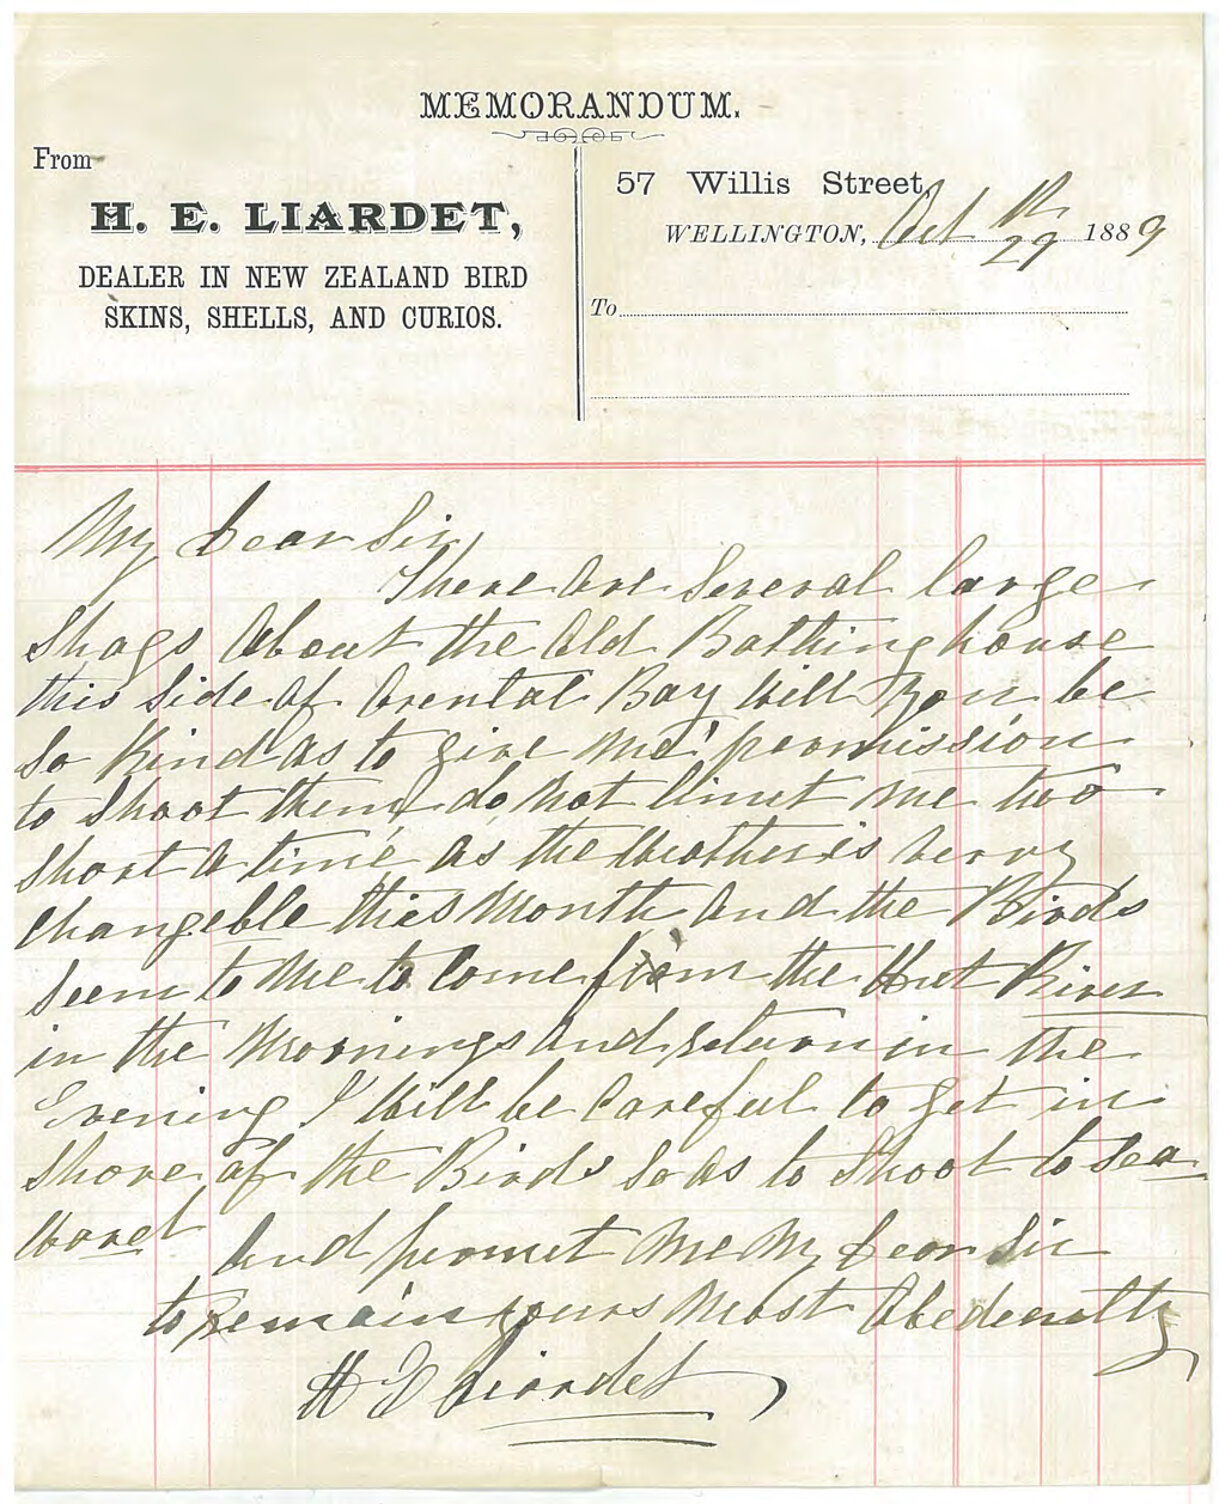 MEMORANDUM.
From
H. E. LIARDET,
DEALER IN NEW ZEALAND BIRD
SKINS, SHELLS, AND CURIOS.
57 Willis Street,
WELLINGTON, Oct 29 th 1889
To
My Dear Sir,
There are Several large
Shags About the Old Bathing house
this Side of Orental Bay Will you be
So Kind as to give me permission
to Shoot them, do not limit me two
Short a time, as the Weather is very
Changeble this Month And the Birds
Seem to Me to Come from the Hut River
in the Mornings and return in the
Evening I Will be Careful to get in
Shore of the Birds So as to Shoot to Sea
Ward
And permit Me My Dear Sir
to Remain yours Most Obedently
H E Liardet